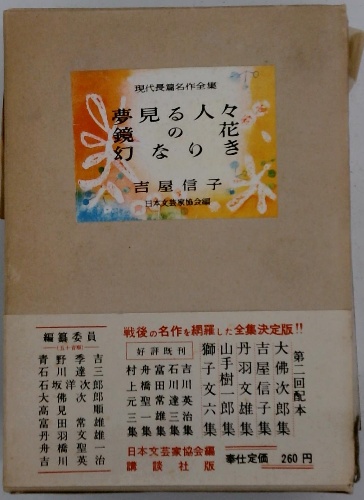 現代長篇名作全集
夢見る人々
鏡の花
幻なりき
吉屋信子
日本文芸家協会編
戦後の名作を網羅した全集決定版!!
第二回配本
大佛次郎集
吉屋信子集
丹羽文雄集
山手樹一郎集
獅子文六集
好評既刊
吉川英治集
石川達三集
富田常雄集
舟橋聖一集
村上元三集
日本文芸家協会編
講談社版
奉仕定価 260円
編纂委員
(五十音順)
青野季吉
石川達三
石坂洋次郎
大佛次郎
高見順
富田常雄
丹羽文雄
舟橋聖一
吉川英治